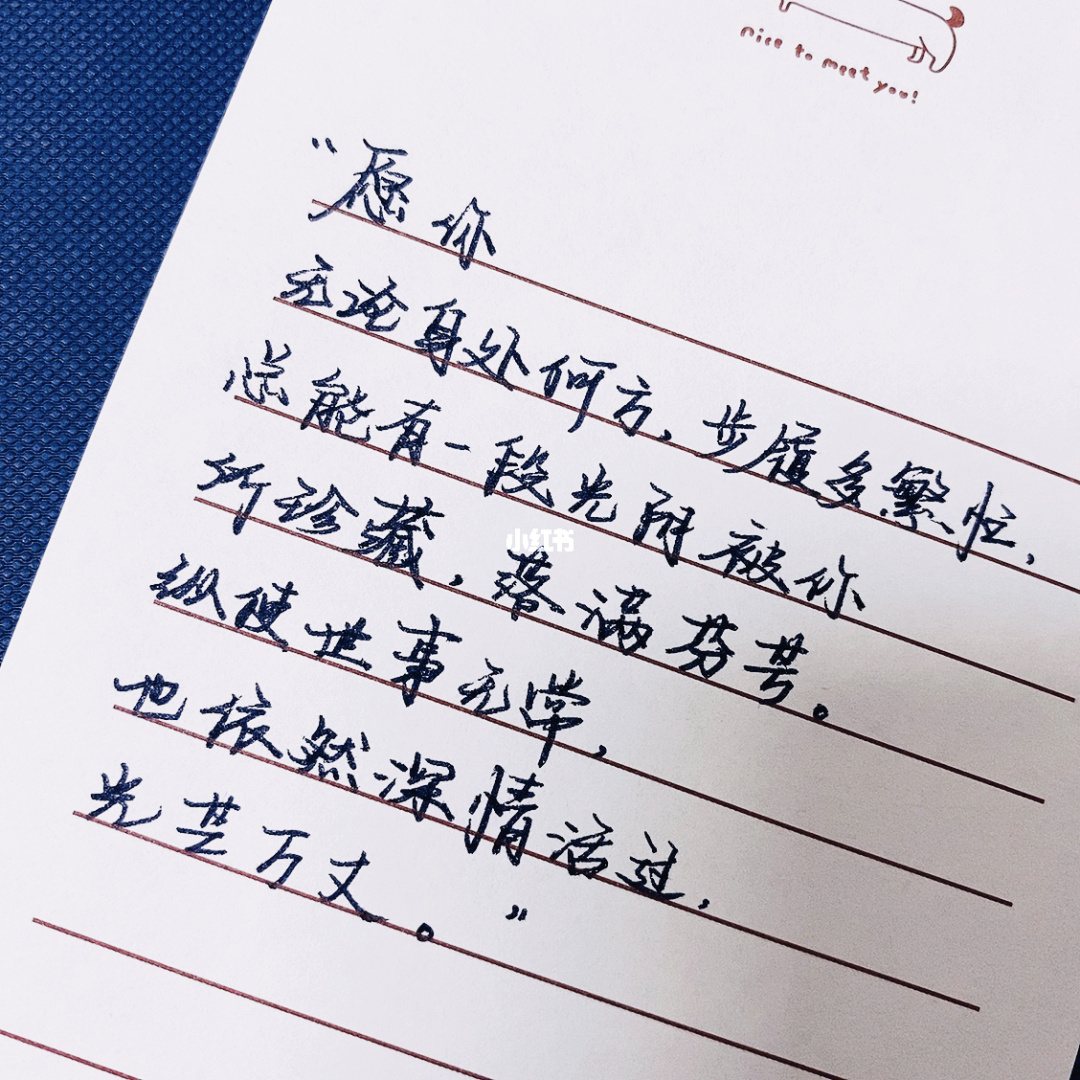 nice to meet you!
“愿你
无论身处何方，步履多繁忙，
总能有一段光阴被你
所珍藏，落满芬芳。
小红书
纵使世事无常，
也依然深情活过，
光芒万丈。”